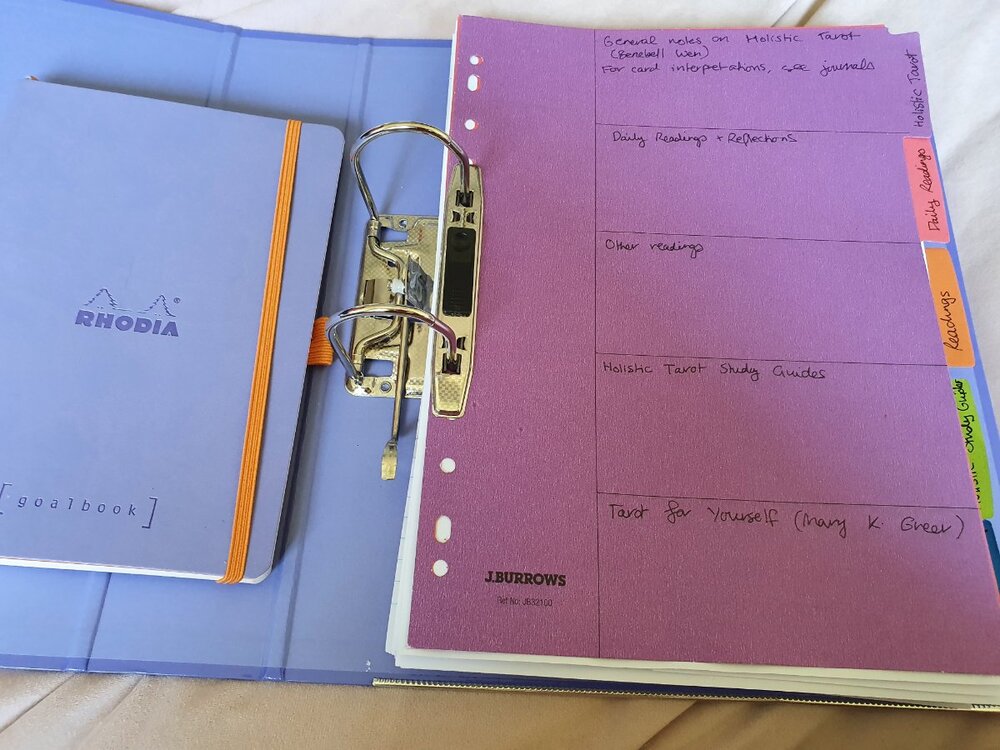 RHODIA®
[goalbook]
General notes on Holistic Tarot
(Benebell Wen)
For card interpretations, see journals
Daily Readings + Reflections
Other readings
Holistic Tarot Study Guides
Tarot for Yourself (Mary K. Greer)
J.BURROWS
Ref No: JB32100
Holistic Tarot
Daily Readings
Readings
Study Guides